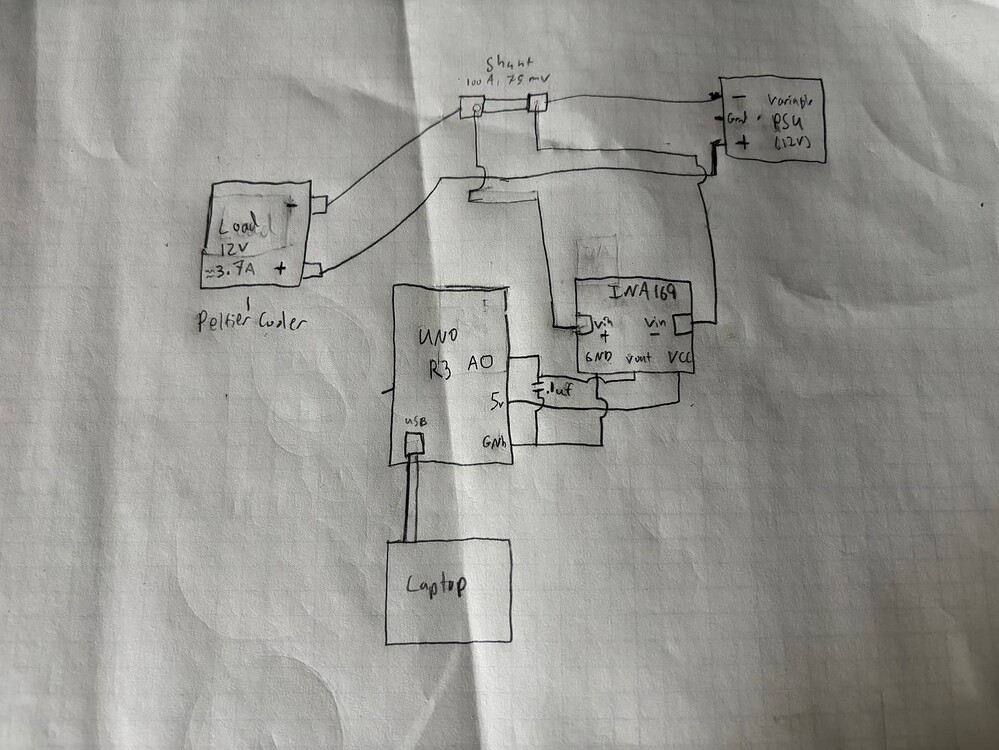 Shunt
100 A, 75 mV
-
Variable
Gnd
PSU
+
(12V)
-
Load
12V
≈3.7A +
Peltier Cooler
INA169
Vin
+
Vin
-
GND Vout VCC
UNO
R3 A0
.1uf
5v
USB
GND
Laptop